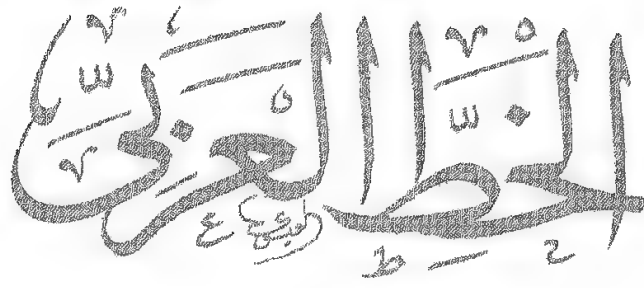 الخطّ العَربيّ